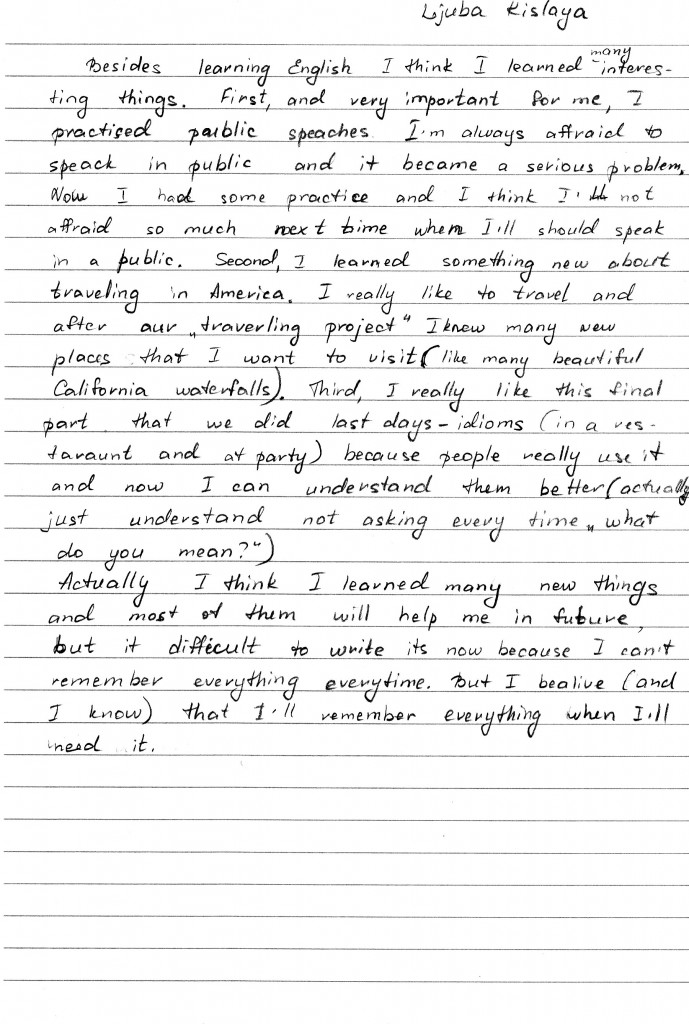 Ljuba Kislaya
many
Besides learning English I think I learned interes-
ting things. First, and very important for me, I
practiced public speaches. I'm always affraid to
speack in public and it became a serious problem.
Now I had some practice and I think I'll not
affraid so much next time when I'll should speak
in a public. Second, I learned something new about
traveling in America. I really like to travel and
after aur „traverling project" I know many new
places that I want to visit (like many beautiful
California waterfalls). Third, I really like this final
part that we did last days - idioms (in a res-
taraunt and at party) because people really use it
and now I can understand them better (actually
just understand not asking every time „what
do you mean?")
Actually I think I learned many new things
and most of them will help me in future,
but it difficult to write its now because I can't
remember everything everytime. But I bealive (and
I know) that I'll remember everything when I'll
need it.